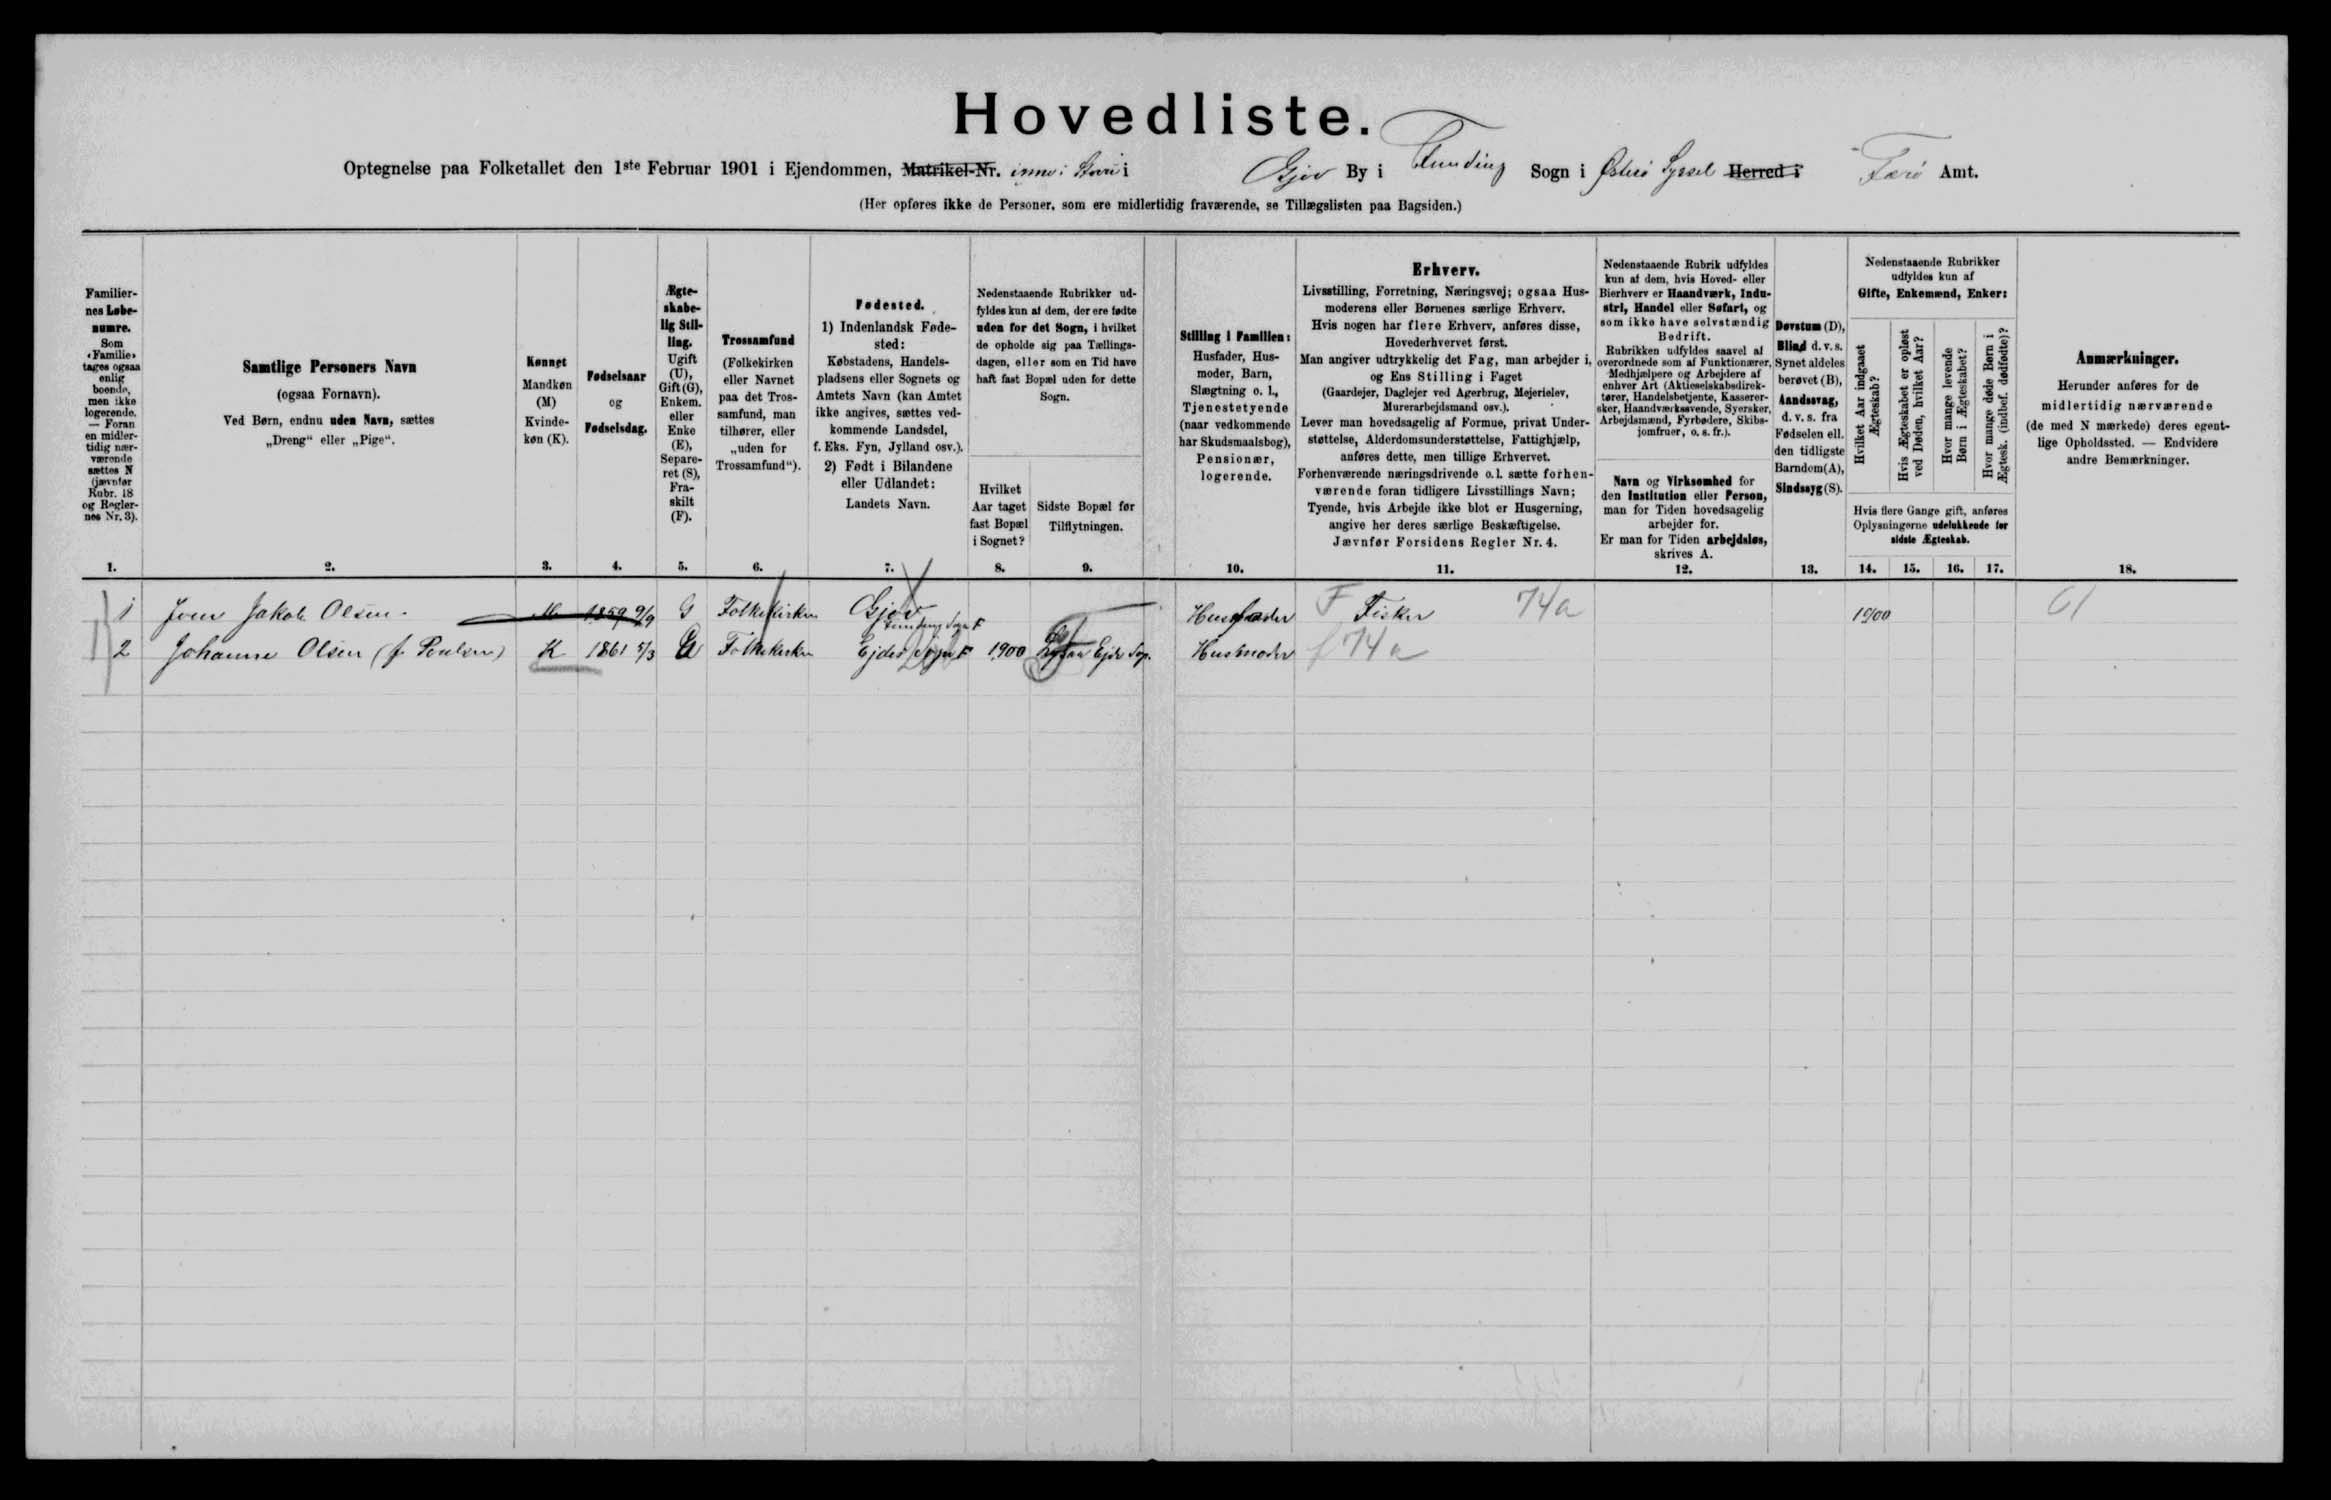 Hovedliste.
Optegnelse paa Folketallet den 1ste Februar 1901 i Ejendommen, Matrikel-Nr. inne i i Gjov By i Funding Sogn i Østerø Syssel Herred i Færø Amt.
(Her opføres ikke de Personer, som ere midlertidig fraværende, se Tillægslisten paa Bagsiden.)
Familier-
nes Løbe-
numre.
Som
‹Familie›
tages ogsaa
enlig
boende,
men ikke
logerende.
— Foran
en midler-
tidig nær-
værende
sættes N
(jævnfør
Rubr. 18
og Regler-
nes Nr. 3).
1.
Samtlige Personers Navn
(ogsaa Fornavn).
Ved Børn, endnu uden Navn, sættes
„Dreng“ eller „Pige“.
2.
Kønnet
Mandkøn
(M)
Kvinde-
køn (K).
3.
Fødselsaar
og
Fødselsdag.
4.
Ægte-
skabe-
lig Stil-
ling.
Ugift
(U),
Gift (G),
Enkem.
eller
Enke
(E),
Separe-
ret (S),
Fra-
skilt
(F).
5.
Trossamfund
(Folkekirken
eller Navnet
paa det Tros-
samfund, man
tilhører, eller
„uden for
Trossamfund“).
6.
Fødested.
1) Indenlandsk Føde-
sted:
Købstadens, Handels-
pladsens eller Sognets og
Amtets Navn (kan Amtet
ikke angives, sættes ved-
kommende Landsdel,
f. Eks. Fyn, Jylland osv.).
2) Født i Bilandene
eller Udlandet:
Landets Navn.
7.
Nedenstaaende Rubrikker ud-
fyldes kun af dem, der ere fødte
uden for det Sogn, i hvilket
de opholde sig paa Tællings-
dagen, eller som en Tid have
haft fast Bopæl uden for dette
Sogn.
Hvilket
Aar taget
fast Bopæl
i Sognet?
8.
Sidste Bopæl før
Tilflytningen.
9.
Stilling i Familien:
Husfader, Hus-
moder, Barn,
Slægtning o. l.,
Tjenestetyende
(naar vedkommende
har Skudsmaalsbog),
Pensionær,
logerende.
10.
Erhverv.
Livsstilling, Forretning, Næringsvej; ogsaa Hus-
moderens eller Børnenes særlige Erhverv.
Hvis nogen har flere Erhverv, anføres disse,
Hovederhvervet først.
Man angiver udtrykkelig det Fag, man arbejder i,
og Ens Stilling i Faget
(Gaardejer, Daglejer ved Agerbrug, Mejerielev,
Murerarbejdsmand osv.).
Lever man hovedsagelig af Formue, privat Under-
støttelse, Alderdomsunderstøttelse, Fattighjælp,
anføres dette, men tillige Erhvervet.
Forhenværende næringsdrivende o. l. sætte forhen-
værende foran tidligere Livsstillings Navn;
Tyende, hvis Arbejde ikke blot er Husgerning,
angive her deres særlige Beskæftigelse.
Jævnfør Forsidens Regler Nr. 4.
11.
Nedenstaaende Rubrik udfyldes
kun af dem, hvis Hoved- eller
Bierhverv er Haandværk, Indu-
stri, Handel eller Søfart, og
som ikke have selvstændig
Bedrift.
Rubrikken udfyldes saavel af
overordnede som af Funktionærer,
Medhjælpere og Arbejdere af
enhver Art (Aktieselskabsdirek-
tører, Handelsbetjente, Kasserer-
sker, Haandværkssvende, Syersker,
Arbejdsmænd, Fyrbødere, Skibs-
jomfruer, o. s. fr.).
Navn og Virksomhed for
den Institution eller Person,
man for Tiden hovedsagelig
arbejder for.
Er man for Tiden arbejdsløs,
skrives A.
12.
Døvstum (D),
Blind d. v. s.
Synet aldeles
berøvet (B),
Aandssvag,
d. v. s. fra
Fødselen ell.
den tidligste
Barndom (A),
Sindssyg (S).
13.
Nedenstaaende Rubrikker
udfyldes kun af
Gifte, Enkemænd, Enker:
Hvilket Aar indgaaet
Ægteskab?
Hvis Ægteskabet er opløst
ved Døden, hvilket Aar?
Hvor mange levende
Børn i Ægteskabet?
Hvor mange døde Børn i
Ægtesk. (indbef. dødfødte)?
Hvis flere Gange gift, anføres
Oplysningerne udelukkende for
sidste Ægteskab.
14. 15. 16. 17.
Anmærkninger.
Herunder anføres for de
midlertidig nærværende
(de med N mærkede) deres egent-
lige Opholdssted. — Endvidere
andre Bemærkninger.
18.
1 Joen Jakob Olsen. M 1859 9/9 G Folkekirken Gjov Funding Sogn F Husfader F Fisker 74a 1900
2 Johanne Olsen (f. Poulsen) K 1861 5/3 G Folkekirken Ejde Sogn F 1900 Ejde Sog. Husmoder f 74a